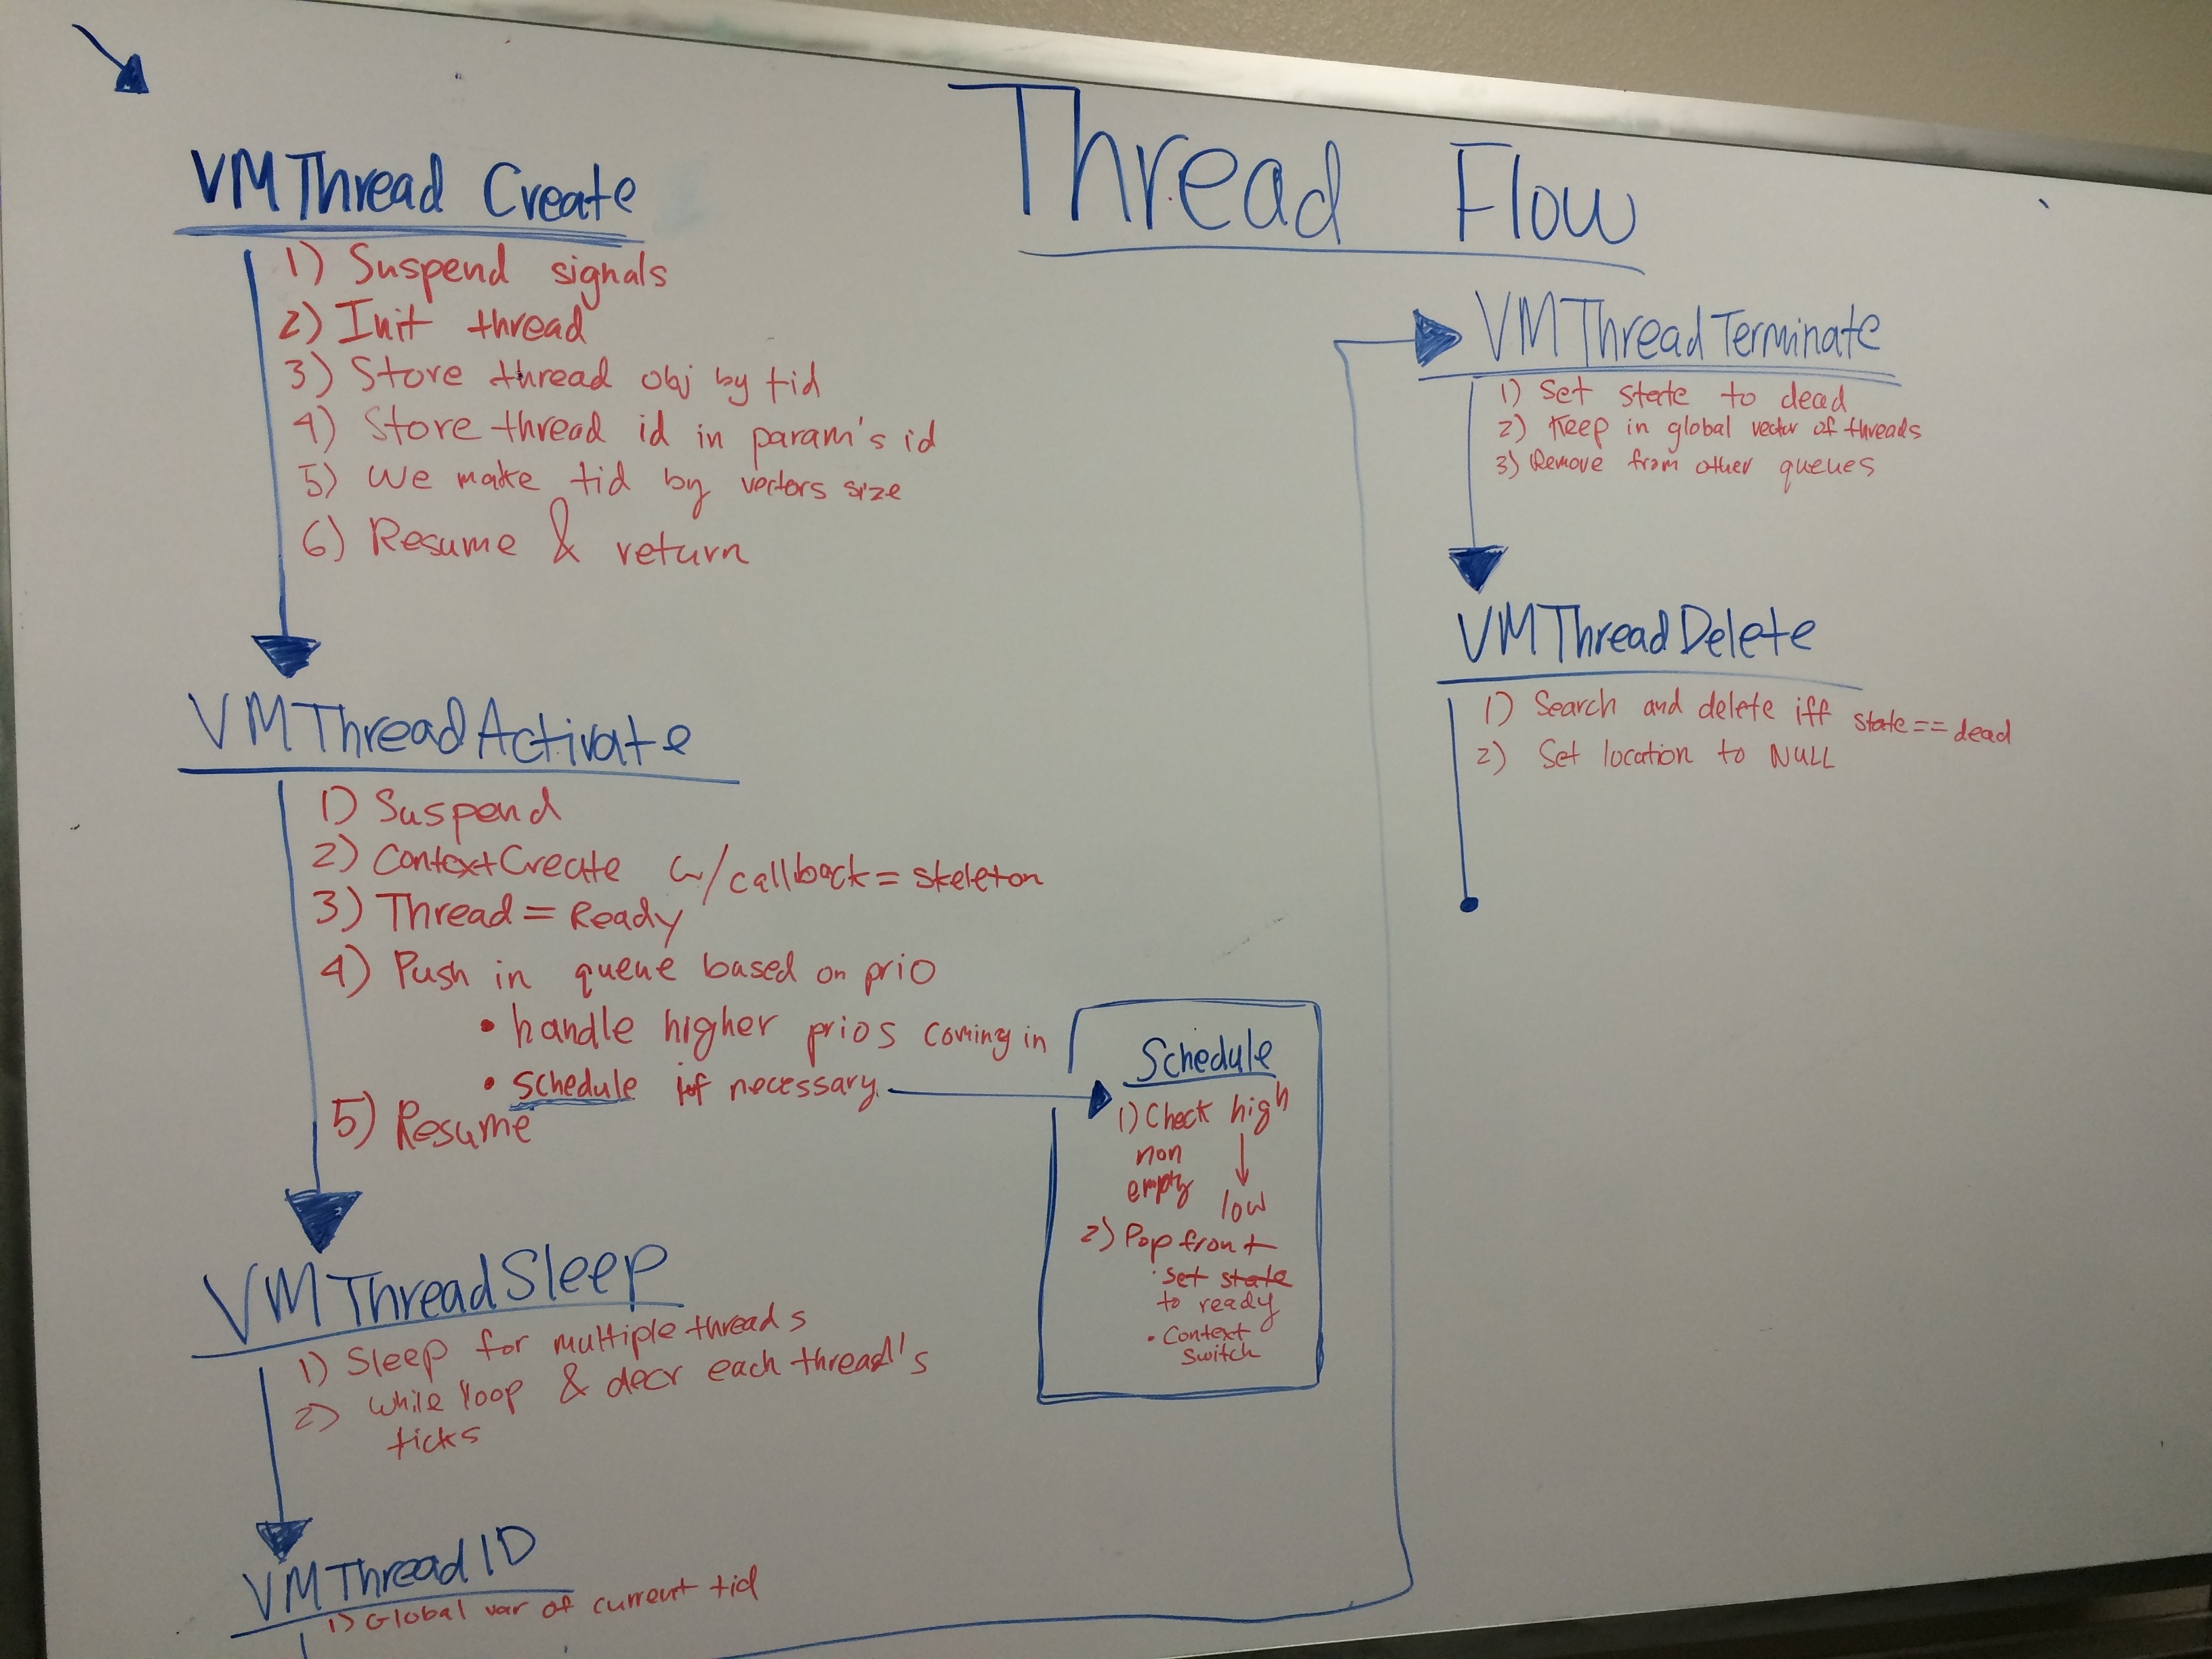 Thread Flow
VMThread Create
1) Suspend signals
2) Init thread
3) Store thread obj by tid
4) Store thread id in param's id
5) We make tid by vectors size
6) Resume & return
VMThreadActivate
1) Suspend
2) ContextCreate w/callback = skeleton
3) Thread = Ready
4) Push in queue based on prio
• handle higher prios coming in
• schedule if necessary
5) Resume
Schedule
1) Check high
non
empty
↓
low
2) Pop front
• set state
to ready
• Context
switch
VMThreadSleep
1) Sleep for multiple threads
2) while loop & decr each thread's
ticks
VMThreadID
1) Global var of current tid
VMThreadTerminate
1) Set state to dead
2) Keep in global vector of threads
3) Remove from other queues
VMThreadDelete
1) Search and delete iff state == dead
2) Set location to NULL